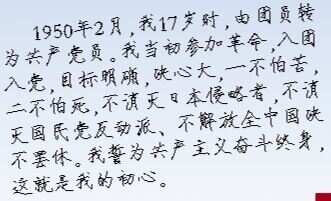 1950年2月,我17岁时,由团员转
为共产党员。我当初参加革命,入团
入党,目标明确,决心大,一不怕苦,
二不怕死,不消灭日本侵略者,不消
灭国民党反动派、不解放全中国决
不罢休。我誓为共产主义奋斗终身,
这就是我的初心。